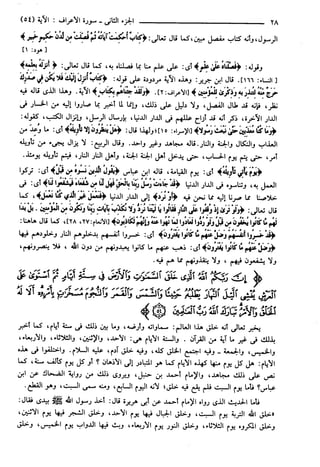 ٢٨ الجزء الثاني - سورة الأعراف: الآية (٥٤)
الرسول، وأنه كتاب مفصل مبين، كما قال تعالى: ﴿كتاب أحكمت آياته ثم فصلت من لدن حكيم خبير﴾
[هود: ١]
وقوله: ﴿فصلناه على علم﴾ أي: على علم منا بما فصلناه به، كما قال تعالى: ﴿أنزله بعلمه﴾
[النساء: ١٦٦]. قال ابن جرير: وهذه الآية مردودة على قوله: ﴿كتاب أنزل إليك فلا يكن في صدرك
حرج منه لتنذر به وذكرى للمؤمنين﴾ [الأعراف: ٢]. ﴿ولقد جئناهم بكتاب﴾ الآية. وهذا الذي قاله فيه
نظر، فإنه قد طال الفصل، ولا دليل على ذلك، وإنما لما أخبر بما صاروا إليه من الخسار في
الدار الآخرة، ذكر أنه قد أزاح عللهم في الدار الدنيا، بإرسال الرسل، وإنزال الكتب، كقوله:
﴿وما كنا معذبين حتى نبعث رسولا﴾ [الإسراء: ١٥]؛ ولهذا قال: ﴿هل ينظرون إلا تأويله﴾ أي: ما وعد من
العذاب والنكال والجنة والنار. قاله مجاهد وغير واحد. وقال الربيع: لا يزال يجيء من تأويله
أمر، حتى يتم يوم الحساب، حتى يدخل أهل الجنة الجنة، وأهل النار النار، فيتم تأويله يومئذ.
﴿يوم يأتي تأويله﴾ أي: يوم القيامة، قاله ابن عباس ﴿يقول الذين نسوه من قبل﴾ أي: تركوا
العمل به، وتناسوه في الدار الدنيا ﴿قد جاءت رسل ربنا بالحق فهل لنا من شفعاء فيشفعوا لنا﴾ أي: في
خلاصنا مما صرنا إليه مما نحن فيه ﴿أو نرد﴾ إلى الدار الدنيا ﴿فنعمل غير الذي كنا نعمل﴾، كما
قال تعالى: ﴿ولو ترى إذ وقفوا على النار فقالوا يا ليتنا نرد ولا نكذب بآيات ربنا ونكون من المؤمنين بل بدا
لهم ما كانوا يخفون من قبل ولو ردوا لعادوا لما نهوا عنه وإنهم لكاذبون﴾ [الأنعام: ٢٧، ٢٨]، كما قال هاهنا:
﴿قد خسروا أنفسهم وضل عنهم ما كانوا يفترون﴾ أي: خسروا أنفسهم بدخولهم النار وخلودهم فيها
﴿وضل عنهم ما كانوا يفترون﴾ أي: ذهب عنهم ما كانوا يعبدونهم من دون الله، فلا ينصرونهم،
ولا يشفعون فيهم، ولا ينقذونهم مما هم فيه.
﴿إن ربكم الله الذي خلق السماوات والأرض في ستة أيام ثم استوى على
العرش يغشي الليل النهار يطلبه حثيثا والشمس والقمر والنجوم مسخرات بأمره ألا
له الخلق والأمر تبارك الله رب العالمين﴾
يخبر تعالى أنه خلق هذا العالم: سماواته وأرضه، وما بين ذلك في ستة أيام، كما أخبر
بذلك في غير ما آية من القرآن. والستة الأيام هي: الأحد، والإثنين، والثلاثاء، والأربعاء،
والخميس، والجمعة - وفيه اجتمع الخلق كله، وفيه خلق آدم، عليه السلام. واختلفوا في هذه
الأيام: هل كل يوم منها كهذه الأيام كما هو المتبادر إلى الأذهان؟ أو كل يوم كألف سنة، كما
نص على ذلك مجاهد، والإمام أحمد بن حنبل، ويروى ذلك من رواية الضحاك عن ابن
عباس؟ فأما يوم السبت فلم يقع فيه خلق؛ لأنه اليوم السابع، ومنه سمي السبت، وهو القطع.
فأما الحديث الذي رواه الإمام أحمد عن أبي هريرة قال: أخذ رسول الله ﷺ بيدي فقال:
«خلق الله التربة يوم السبت، وخلق الجبال فيها يوم الأحد، وخلق الشجر فيها يوم الاثنين،
وخلق المكروه يوم الثلاثاء، وخلق النور يوم الأربعاء، وبث فيها الدواب يوم الخميس، وخلق